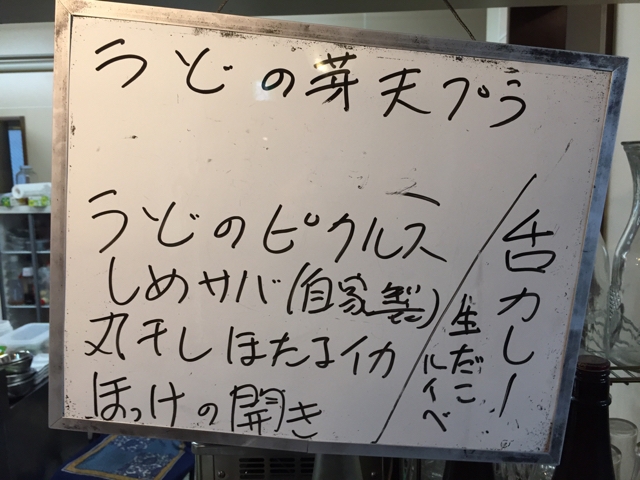 うどの芽天プラ
うどのピクルス
しめサバ(自家製)
丸干しほたるイカ
ほっけの開き
舌カレー
生だこ
ルイベ